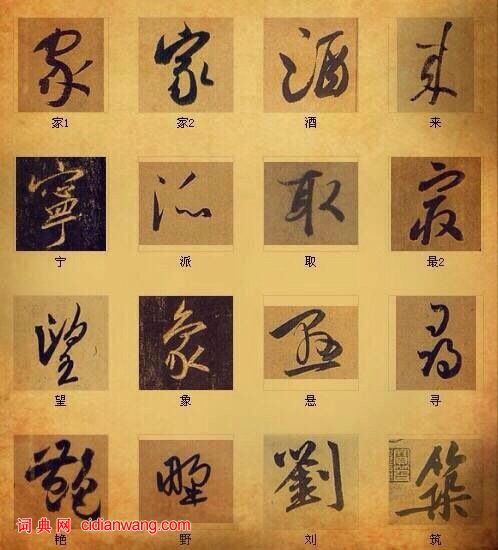 家 家 酒 来
家1 家2 酒 来
寧 派 取 最
宁 派 取 最2
望 象 悬 寻
望 象 悬 寻
艳 野 劉 築
艳 野 刘 筑
词典网 cidianwang.com